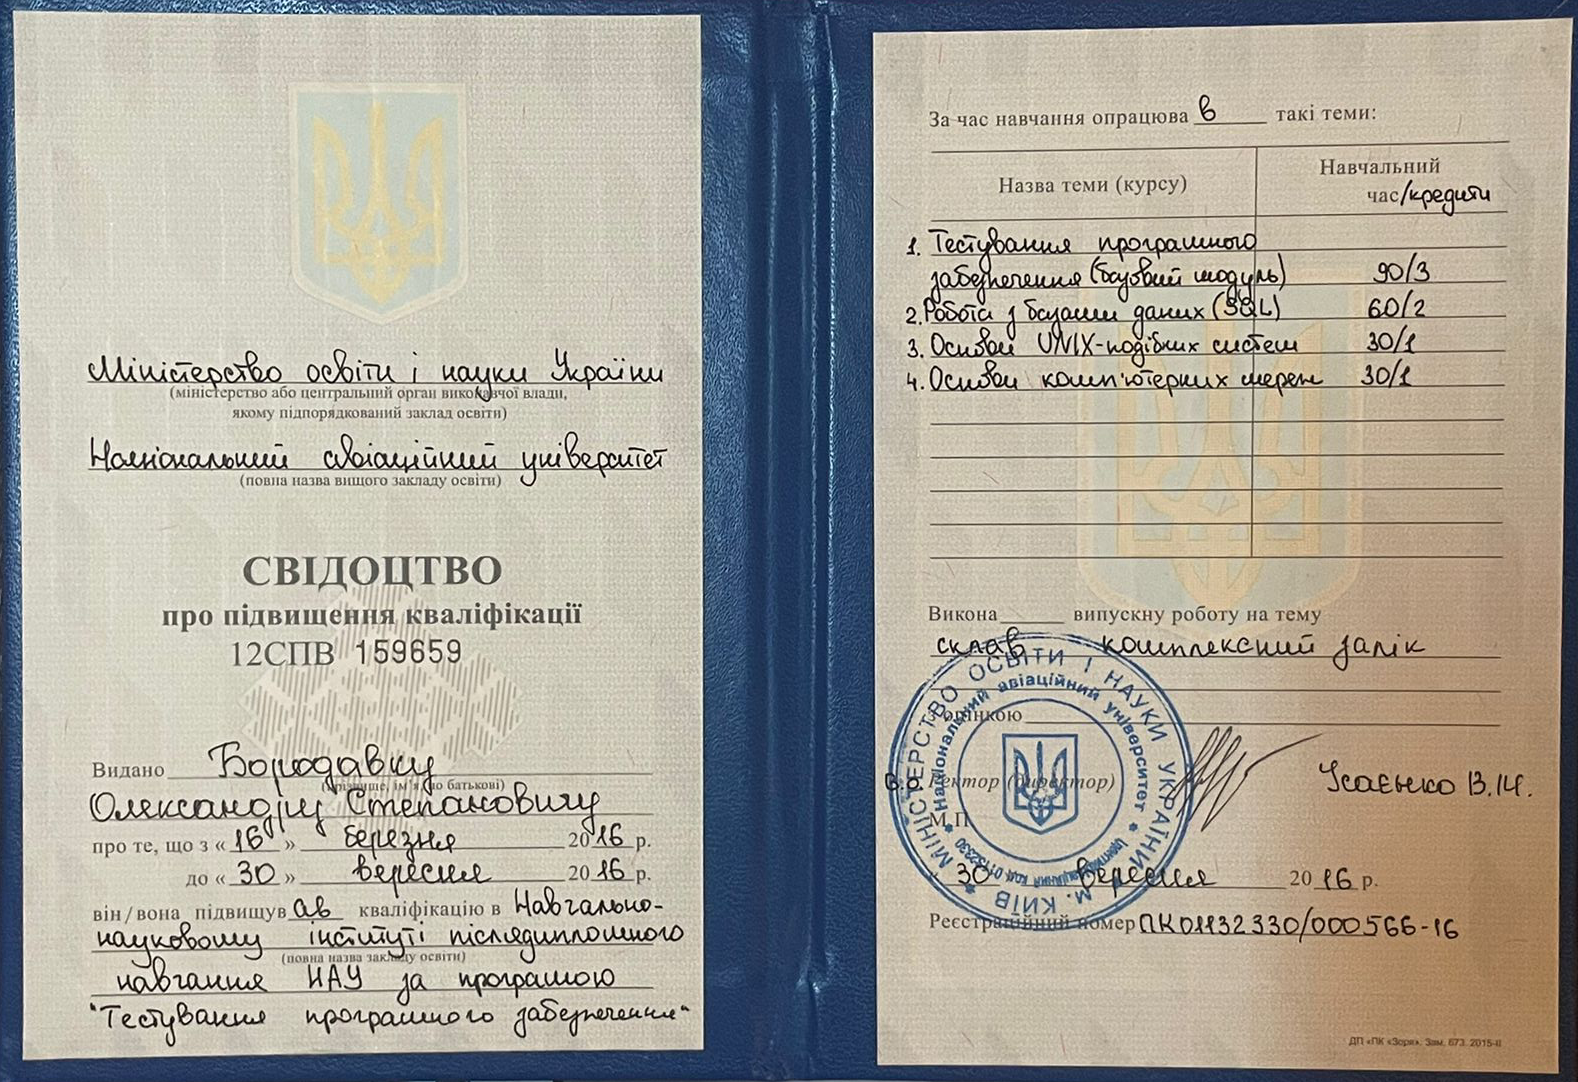 Міністерство освіти і науки України
(міністерство або центральний орган виконавчої влади,
якому підпорядкований заклад освіти)
Національний авіаційний університет
(повна назва вищого закладу освіти)
СВІДОЦТВО
про підвищення кваліфікації
12СПВ 159659
Видано Бородавку
(прізвище, ім'я, по батькові)
Олександру Степановичу
про те, що з « 16 » березня 20 16 р.
до « 30 » вересня 20 16 р.
він/вона підвищув ав кваліфікацію в Навчально-
науковому інституті післядипломного
(повна назва закладу освіти)
навчання НАУ за програмою
"Тестування програмного забезпечення"
За час навчання опрацюва в такі теми:
Назва теми (курсу)
Навчальний
час/кредити
1. Тестування програмного
забезпечення (базовий модуль) 90/3
2. Робота з базами даних (SQL) 60/2
3. Основи UNIX-подібних систем 30/1
4. Основи комп'ютерних мереж 30/1
Викона випускну роботу на тему
склав комплексний залік
з оцінкою
В.о. Ректор (директор) Ісаєнко В.М.
М.П.
« 30 » вересня 20 16 р.
Реєстраційний номер ПК01132330/000566-16
МІНІСТЕРСТВО ОСВІТИ І НАУКИ УКРАЇНИ * М. КИЇВ *
Національний авіаційний університет * Ідентифікаційний код 01132330 *
ДП «ПК «Зоря». Зам. 673. 2015-ІІ